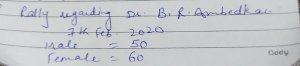 Rally regarding Dr. B. R. Ambedkar
7th Feb. 2020
Male = 50
Female = 60